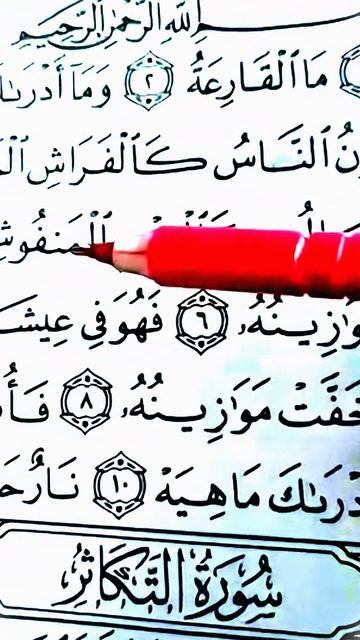 ـــم الله الرحمن الرحيم
مَا ٱلْقَارِعَةُ ٢ وَمَآ أَدْرَىٰكَ
ٱلنَّاسُ كَٱلْفَرَاشِ
ٱلْمَنفُوشِ
مَوَٰزِينُهُۥ ٦ فَهُوَ فِي عِيشَةٍ
خَفَّتْ مَوَٰزِينُهُۥ ٨
أَدْرَىٰكَ مَا هِيَهْ ١٠ نَارٌ
سُورَةُ التَّكَاثُرِ